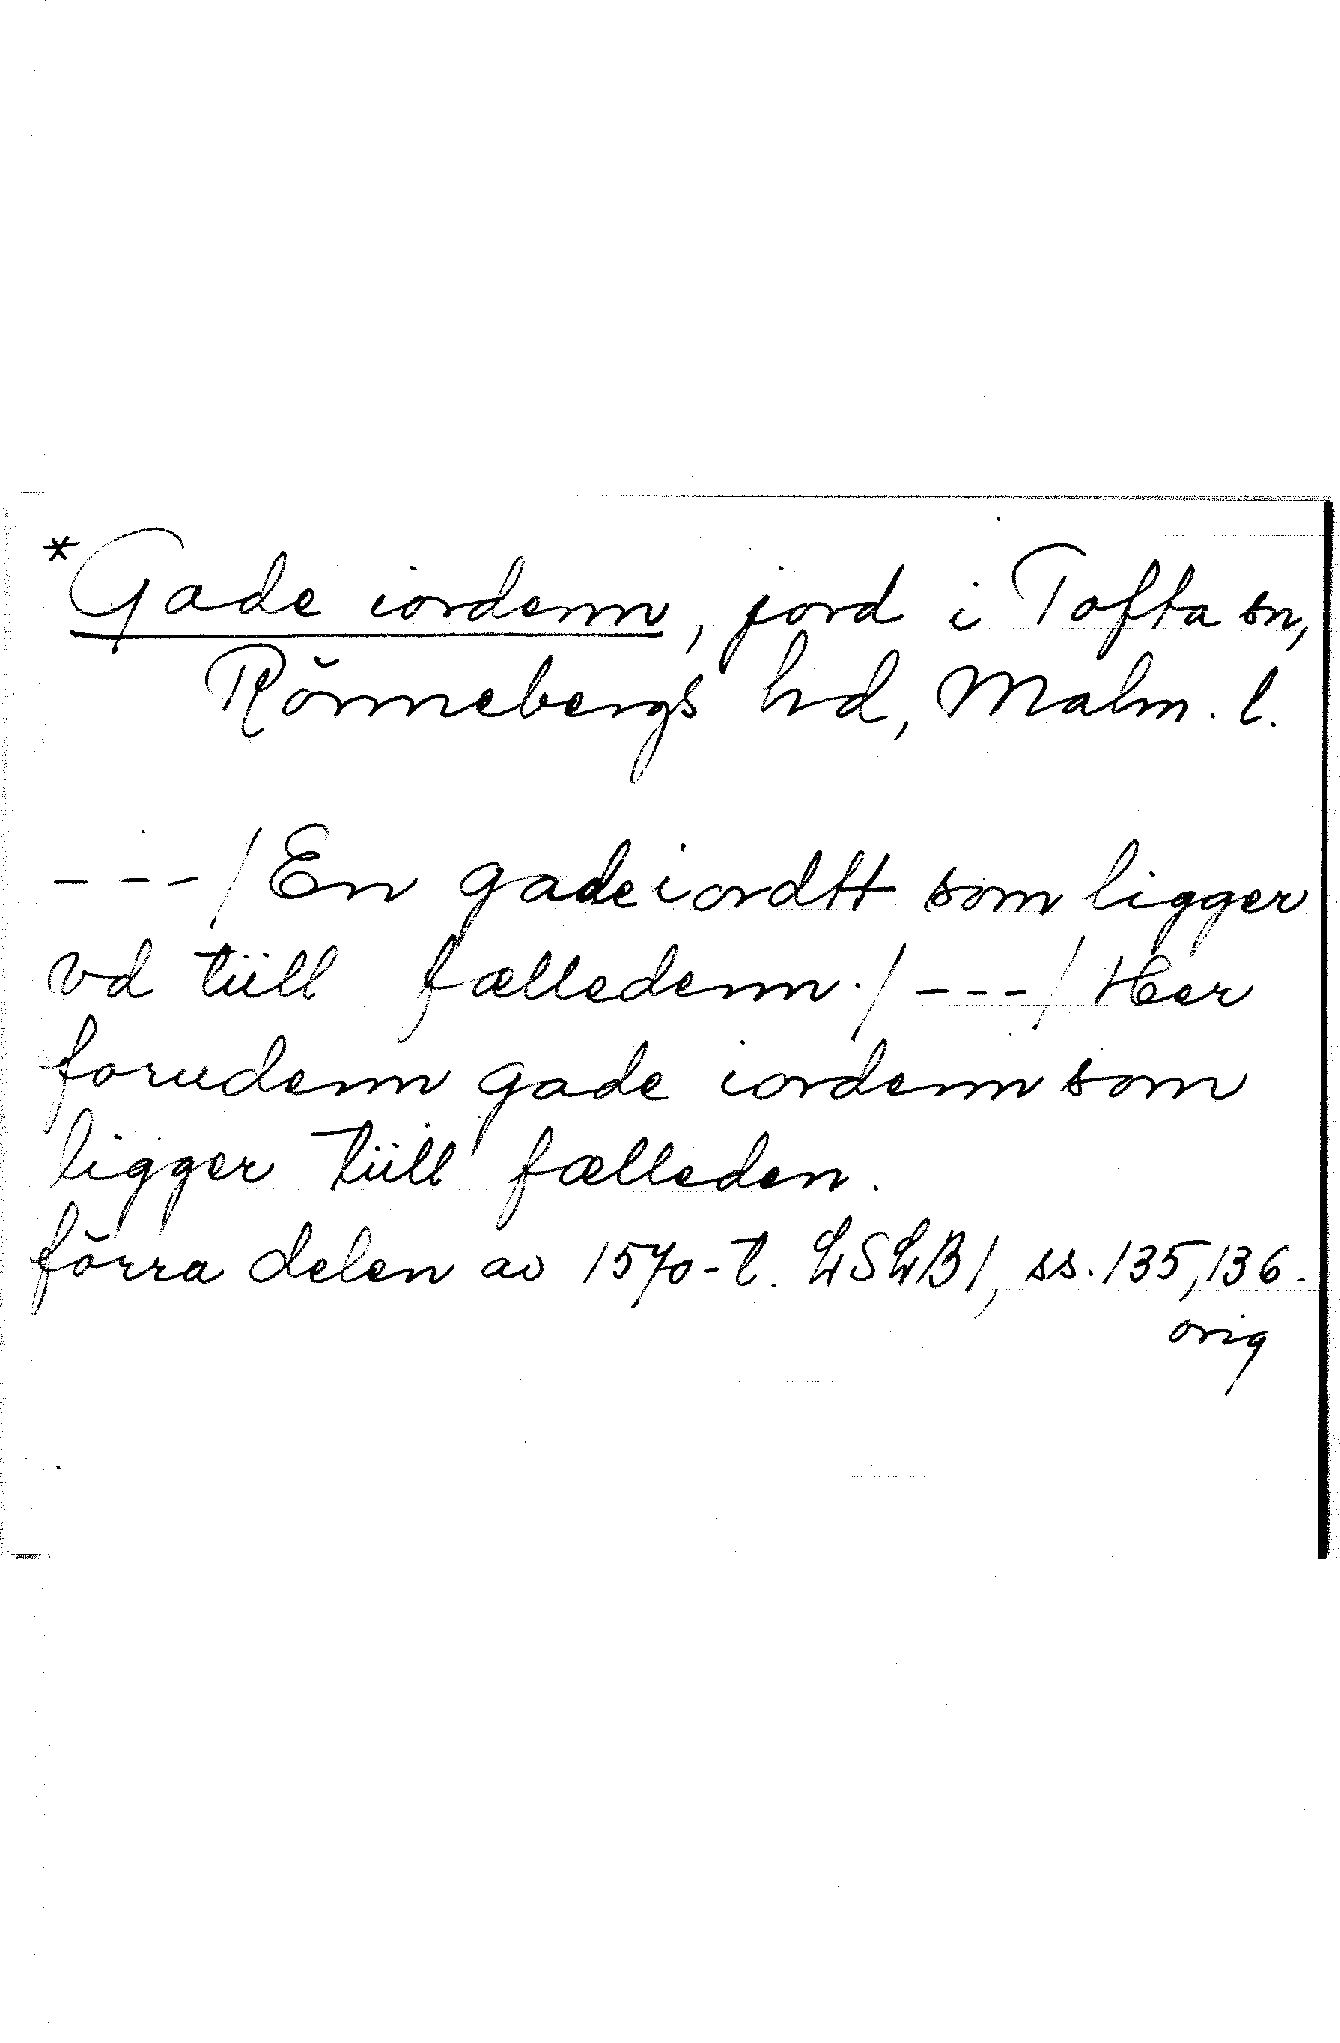 *Gade iordenn, jord i Tofta sn,
Rönnebergs hd, Malm. l.
---/En gadeiordtt som ligger
vd tiill fælledenn./---/Her
forudenn gade iordenn som
ligger tiill fælleden.
förra delen av 1570-t. LSLB1, ss. 135,136.
orig